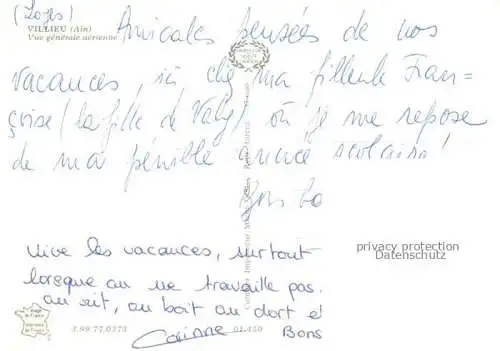 (Loyes)
VILLIEU (Ain)
Vue générale aérienne
Amicales pensées de nos
vacances, ici chez ma filleule Fran=
çoise (la fille de Valy) où je me repose
de ma pénible année scolaire!
Bons
privacy protection
Datenschutz
Vive les vacances, surtout
lorsque on ne travaille pas.
on rit, on boit on dort et
Corinne
Bons
3.99.77.0373
01.450